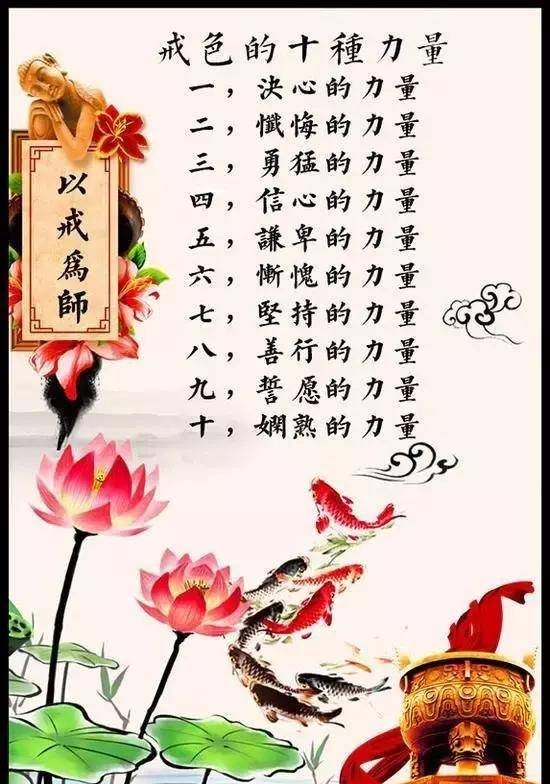 戒色的十種力量
一，決心的力量
二，懺悔的力量
三，勇猛的力量
四，信心的力量
五，謙卑的力量
六，慚愧的力量
七，堅持的力量
八，善行的力量
九，誓愿的力量
十，嫻熟的力量
以戒為師